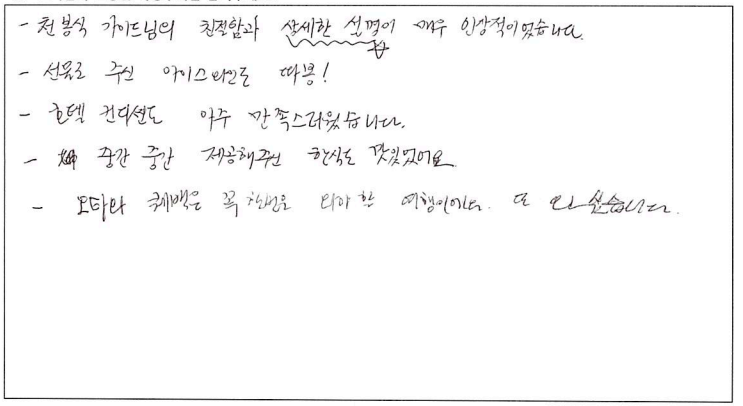 - 천봉식 가이드님의 친절함과 상세한 설명이 매우 인상적이었습니다.
- 선물로 주신 아이스와인도 따봉!
- 호텔 컨디션도 아주 만족스러웠습니다.
- 중간 중간 제공해주신 한식도 맛있었어요
- 오타와 퀘백은 꼭 한번은 와야 한 여행이에요. 또 오고 싶습니다.